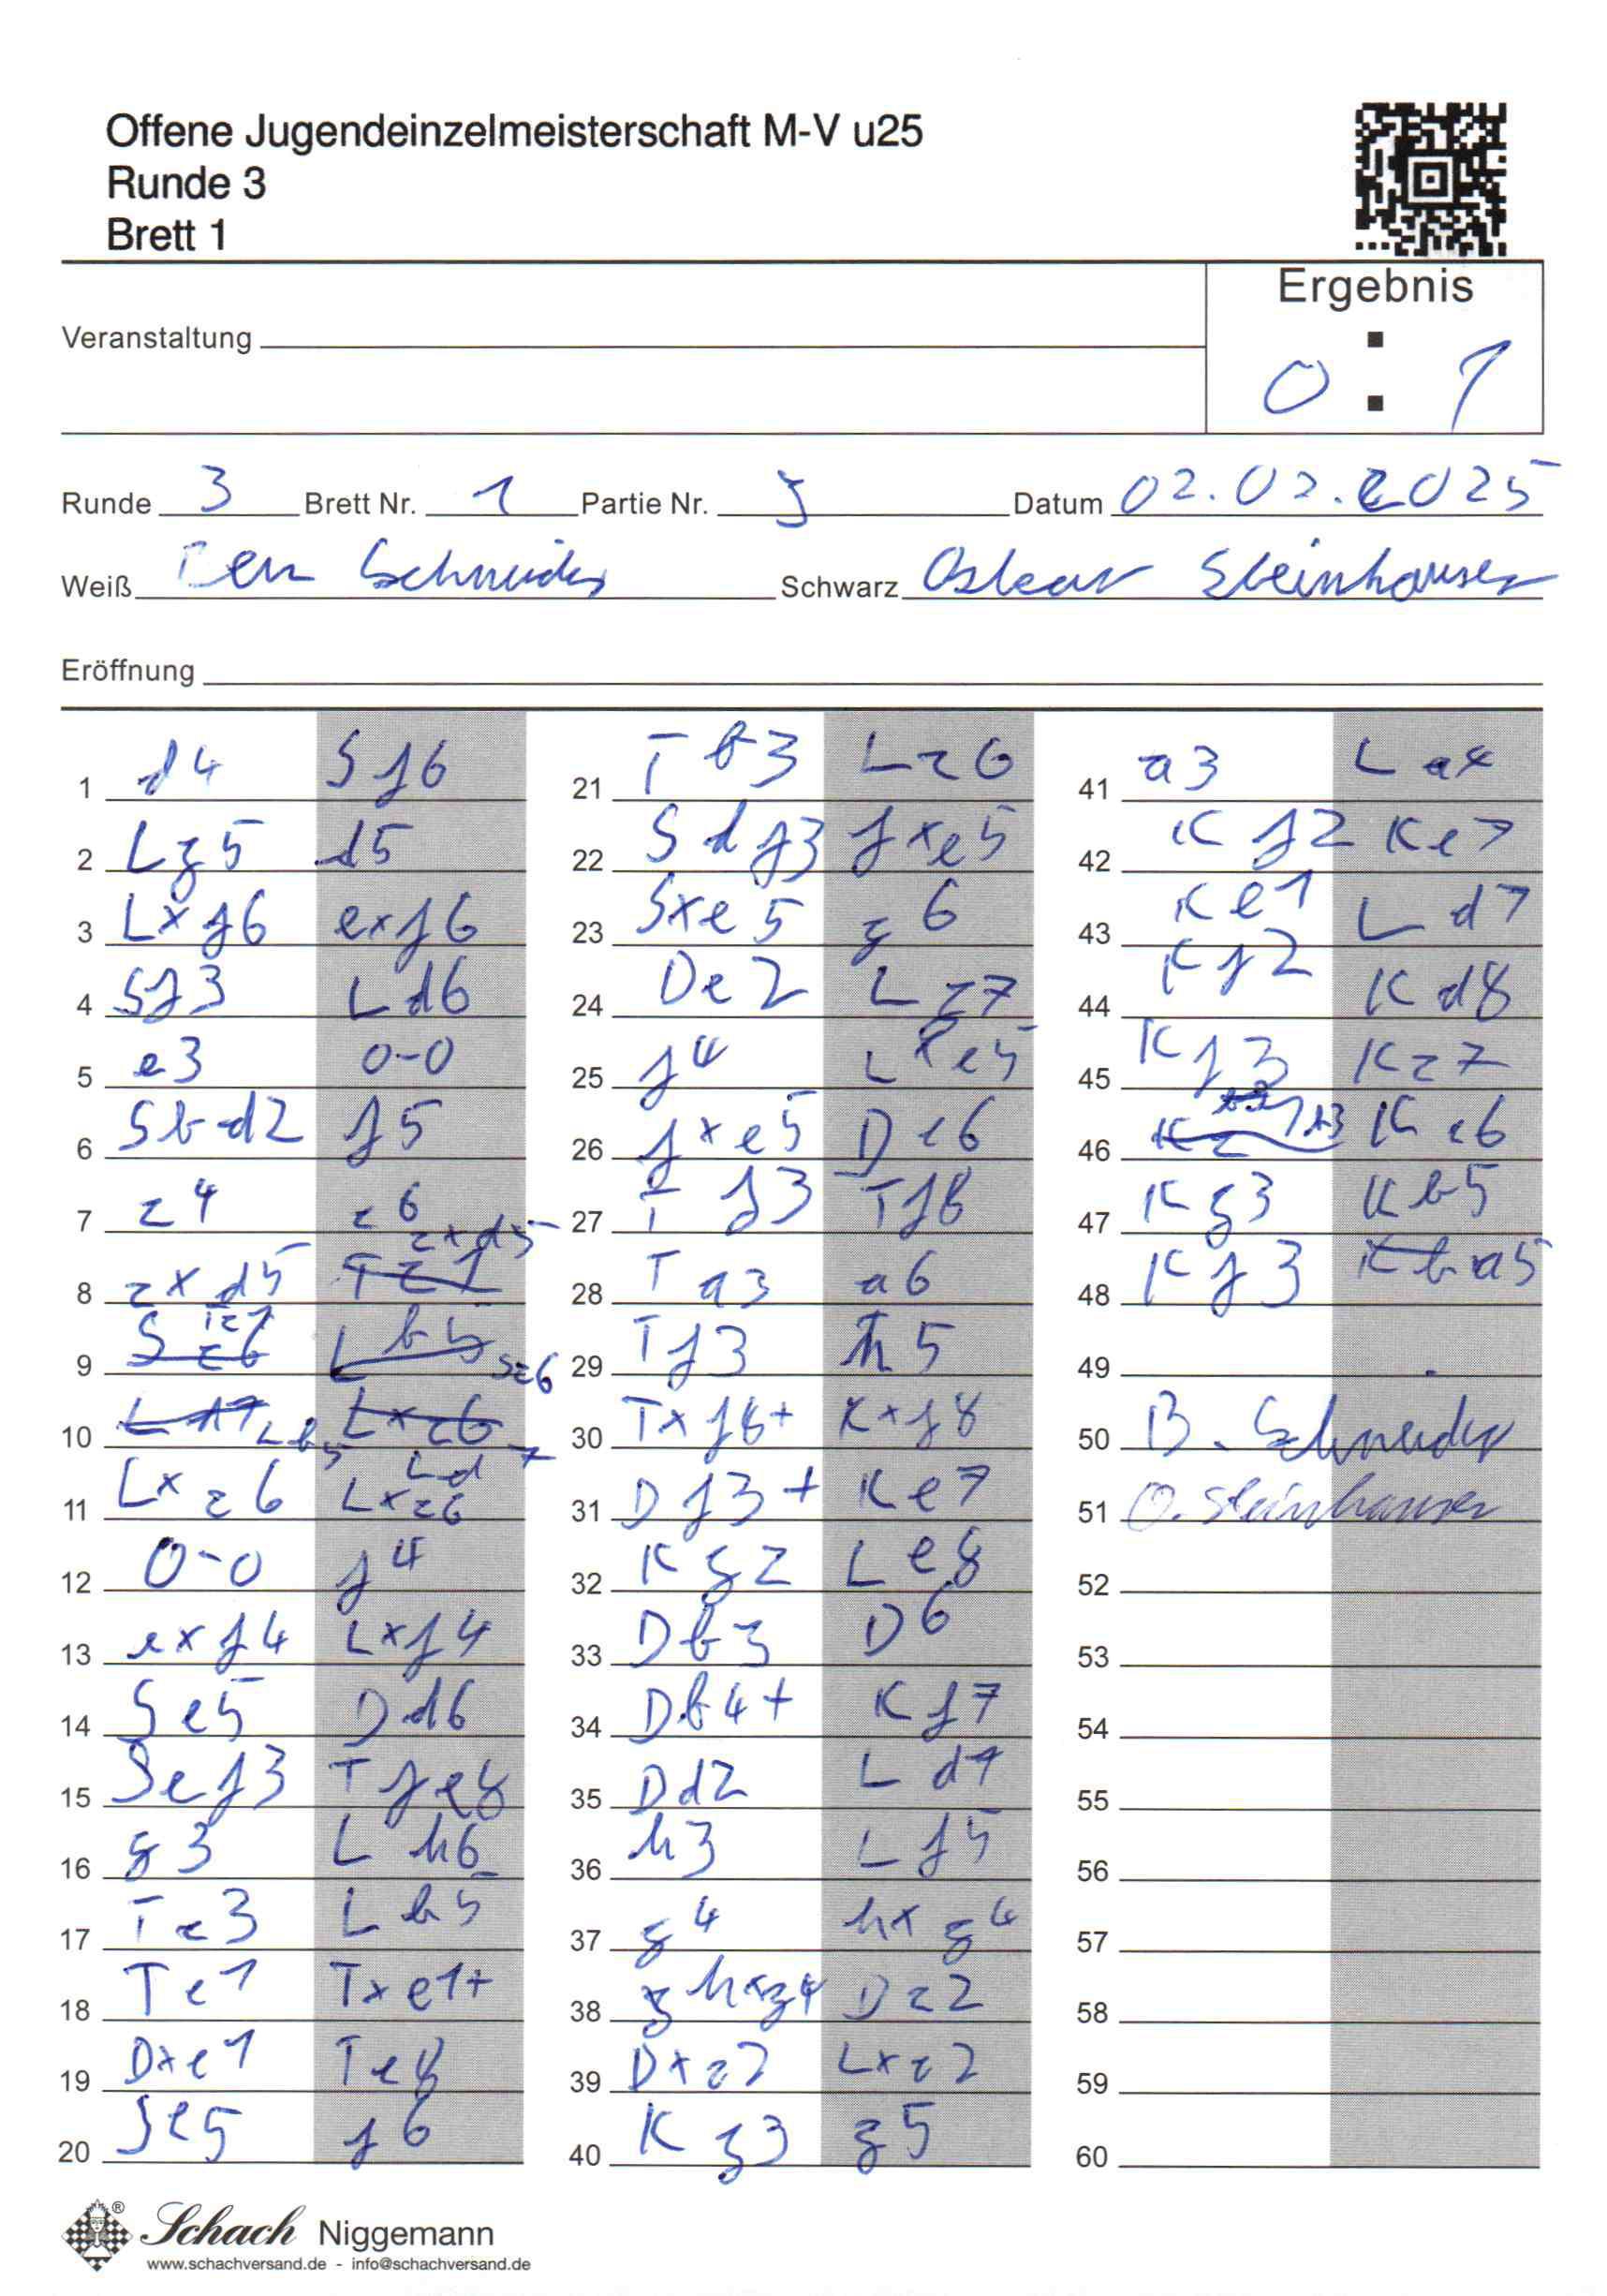 Offene Jugendeinzelmeisterschaft M-V u25
Runde 3
Brett 1
Ergebnis
Veranstaltung
0 : 1
Runde 3 Brett Nr. 1 Partie Nr. Datum 02.02.2025
Weiß Ben Schneider Schwarz Oskar Steinhauser
Eröffnung
1 d4 Sf6
2 Lg5 d5
3 Lxf6 exf6
4 Sf3 Ld6
5 e3 0-0
6 Sbd2 f5
7 c4 c6
8 cxd5 cxd5
9 Tc1 Sc6
10 Lb5 Ld7
11 Lxc6 Lxc6
12 0-0 f4
13 exf4 Lxf4
14 Se5 Dd6
15 Sef3 Tfe8
16 g3 Lh6
17 Tc3 Lb5
18 Te1 Txe1+
19 Dxe1 Te8
20 Se5 f6
21 Tb3 Lc6
22 Sdf3 fxe5
23 Sxe5 g6
24 De2 Lg7
25 f4 Lxe5
26 fxe5 De6
27 Tf3 Tf8
28 Ta3 a6
29 Tf3 h5
30 Txf8+ Kxf8
31 Df3+ Ke7
32 Kg2 Le8
33 Db3 D6
34 Db4+ Kf7
35 Dd2 Ld7
36 h3 Lf5
37 g4 hxg4
38 hxg4 Dc2
39 Dxc2 Lxc2
40 Kg3 g5
41 a3 La4
42 Kf2 Ke7
43 Ke1 Ld7
44 Kf2 Kd8
45 Kf3 Kc7
46 b3 Kc6
47 Kg3 Kb5
48 Kf3 a5
49
50 B. Schneider
51 O. Steinhauser
52
53
54
55
56
57
58
59
60
Schach Niggemann
www.schachversand.de - info@schachversand.de